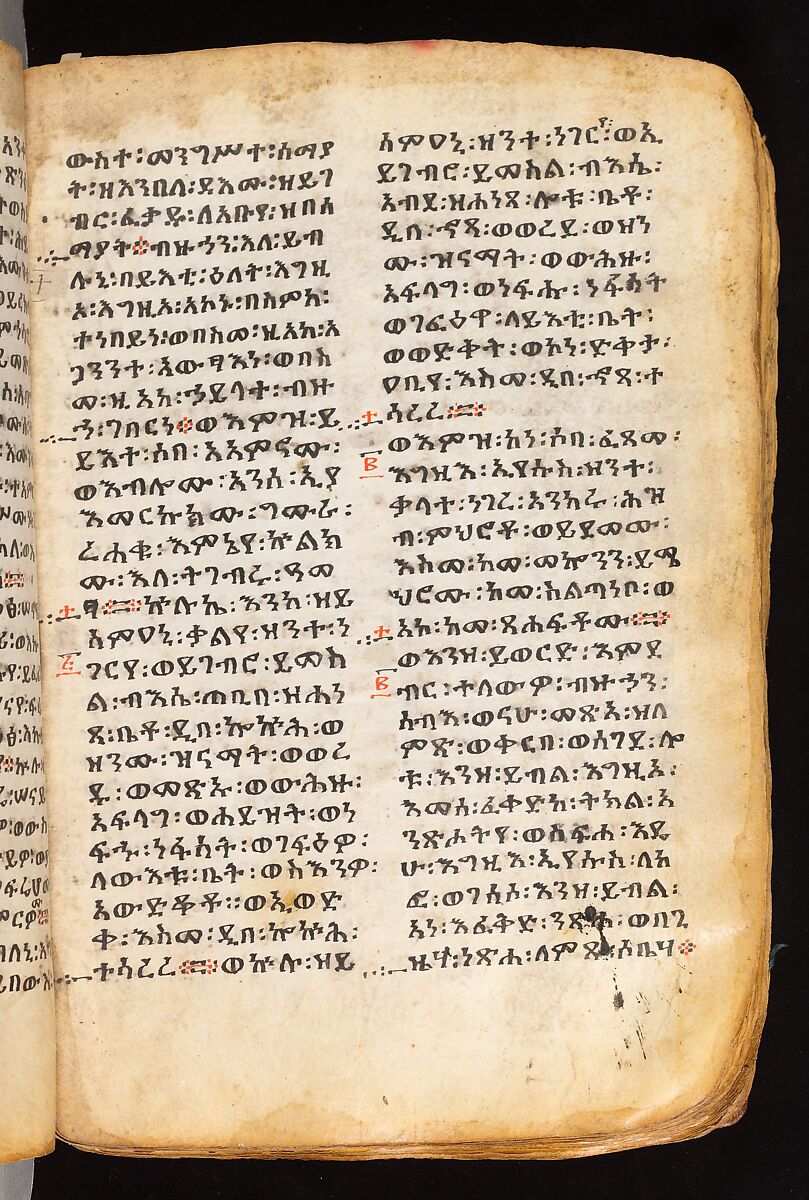 ውስተ፡መንግሥተ፡ሰማያ
ት፡ዘእንበለ፡ዳእሙ፡ዘይገ
ብር፡ፈቃዱ፡ለአቡየ፡ዘበሰ
ማያት፨ብዙኃን፡እለ፡ይብ
ሉኒ፡በይእቲ፡ዕለት፡እግዚ
ኦ፡እግዚኦ፡አኮኑ፡በስምከ፡
ተነበይነ፡ወበስመ፡ዚአከ፡አ
ጋንንተ፡አውፃእነ፡ወበስ
መ፡ዚአከ፡ኃይላተ፡ብዙ
ኃ፡ገበርነ፨ወእምዝ፡ይ
ይእተ፡ሶበ፡አአምኖሙ፡
ወእብሎሙ፡አንሰ፡ኢያ
እመርኩክሙ፡ግሙራ፡
ረሐቁ፡እምኔየ፡ኵልክ
ሙ፡እለ፡ትገብሩ፡ዓመ
ፃ፨ኵሉኬ፡እንከ፡ዘይ
ሰምዐኒ፡ቃልየ፡ዘንተ፡ነ
ገርየ፡ወይገብሮ፡ይመስ
ል፡ብእሴ፡ጠቢበ፡ዘሐነ
ጸ፡ቤቶ፡ዲበ፡ኰኵሕ፡ወ
ዘንሙ፡ዝናማት፡ወወረ
ዱ፡ወመጽኡ፡ወውሕዙ፡
አፍላግ፡ወሐይዝት፡ወነ
ፍኁ፡ነፋሳት፡ወገፍዕዎ፡
ለውእቱ፡ቤት፡ወስእንዎ፡
አውድቆቶ፡፡ወኢወድ
ቀ፡እስመ፡ዲበ፡ኰኵሕ፡
ተሳረረ፨ወኵሉ፡ዘይ
ሰምዐኒ፡ዘንተ፡ነገርየ፡ወኢ
ይገብሮ፡ይመስል፡ብእሴ፡
አብደ፡ዘሐነጸ፡ሎቱ፡ቤቶ፡
ዲበ፡ኆጻ፡ወወረደ፡ወዘን
ሙ፡ዝናማት፡ወውሕዙ፡
አፍላግ፡ወነፍሑ፡ነፋሳት
ወገፈዕዋ፡ለይእቲ፡ቤት፡
ወወድቀት፡ወኮነ፡ድቀታ፡
ዐቢየ፡እስመ፡ዲበ፡ኆጻ፡ተ
ሳረረ፨
ወእምዝ፡ከነ፡ሶበ፡ፈጸመ፡
እግዚእ፡ኢየሱስ፡ዝንተ፡
ቃላተ፡ነገረ፡አንከሩ፡ሕዝ
ብ፡ምህሮቶ፡ወይደመሙ፡
እስመ፡ከመ፡መኰንን፡ይሜ
ህሮሙ፡ከመ፡ስልጣነቦ፡ወ
አኮ፡ከመ፡ጸሐፍቶሙ፨
ወእንዘ፡ይወርድ፡እምደ
ብር፡ተለውዎ፡ብዙኃን፡
ሰብእ፡ወናሁ፡መጽአ፡ዘለ
ምጽ፡ወቀርበ፡ወሰገደ፡ሎ
ቱ፡እንዘ፡ይብል፡እግዚኦ፡
እመሰ፡ፈቀድከ፡ትክል፡አ
ንጽሖትየ፡ወሰፍሐ፡እዴ
ሁ፡እግዚእ፡ኢየሱስ፡ለከ
ፎ፡ወገሰሶ፡እንዘ፡ይብል፡
እነ፡እፈቅድ፡ንጻሕ፡ወበጊ
ዜሃ፡ነጽሐ፡ለምጹ፡ሶቤሃ፨